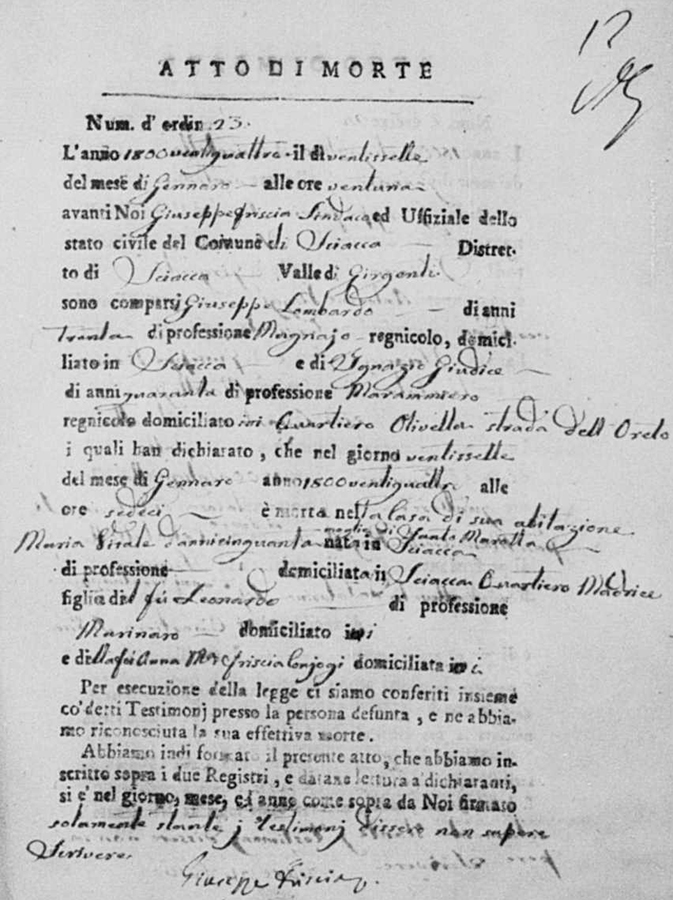 12
ATTO DI MORTE
Num. d' ordin. 23.
L'anno 1800 ventiquattro il dì ventisette
del mese di Gennaro alle ore ventuna
avanti Noi Giuseppe Friscia Sindaco ed Uffiziale dello
stato civile del Comune di Sciacca Distret-
to di Sciacca Valle di Girgenti
sono comparsi Giuseppe Lombardo di anni
trenta di professione Magnajo regnicolo, domici-
liato in Sciacca e di Ignazio Giudice
di anni quaranta di professione Marammiero
regnicolo domiciliato ivi Quartiero Olivella strada dell Orelo
i quali han dichiarato, che nel giorno ventisette
del mese di Gennaro anno 1800 ventiquattro alle
ore sedeci è morta nella Casa di sua abitazione
moglie di Santo Marotta
Maria Vitale d'anni cinquanta nata in Sciacca
di professione domiciliata in Sciacca Quartiero Madrice
figlia del fù Leonardo di professione
Marinaro domiciliato ivi
e della fu Anna Mª Friscia Conjogi domiciliata ivi
Per esecuzione della legge ci siamo conferiti insieme
co' detti Testimonj presso la persona defunta, e ne abbia-
mo riconosciuta la sua effettiva morte.
Abbiamo indi formato il presente atto, che abbiamo in-
scritto sopra i due Registri, e datane lettura a' dichiaranti,
si è nel giorno, mese, ed anno come sopra da Noi firmato
solamente stante j testimonj dissero non sapere
Scrivere
Giuseppe Friscia